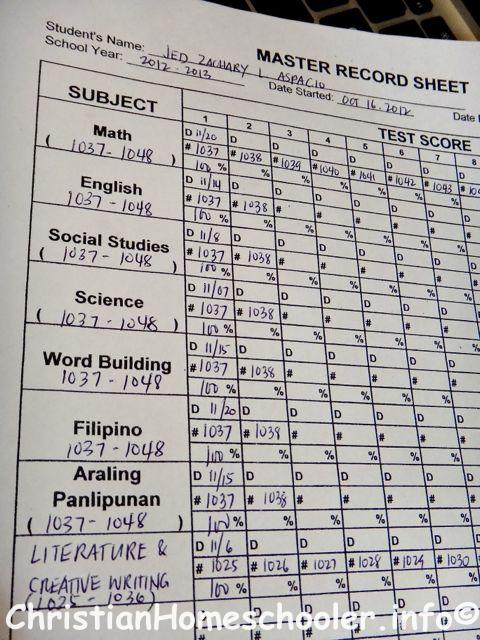 MASTER RECORD SHEET
Student's Name: JED ZACHARY L ASPACIO
School Year: 2012 - 2013 Date Started: OCT 16. 2012 Date
SUBJECT TEST SCORE
1 2 3 4 5 6 7 8
Math D 11/20 D D D D D D D
( 1037 - 1048 ) # 1037 # 1038 # 1039 # 1040 # 1041 # 1042 # 1043 #
100 % % % % % % %
English D 11/14 D D D D D D D
1037 - 1048 # 1037 # 1038 # # # # # #
100 % % % % % % %
Social Studies D 11/8 D D D D D D D
( 1037 - 1048 ) # 1037 # 1038 # # # # # #
100 % % % % % % %
Science D 11/07 D D D D D D D
( 1037 - 1048 ) # 1037 # 1038 # # # # # #
100 % % % % % % %
Word Building D 11/15 D D D D D D D
1037 - 1048 # 1037 # 1038 # # # # # #
100 % % % % % % %
Filipino D 11/20 D D D D D D D
1037 - 1048 # 1037 # 1038 # # # # # #
100 % % % % % % %
Araling D 11/15 D D D D D D
Panlipunan # 1037 # 1038 # # # # #
( 1037 - 1048 ) 100 % % % % % % %
LITERATURE & D 11/6 D D D D D
CREATIVE WRITING # 1025 # 1026 # 1027 # 1028 # 1029 # 1030
(1025 - 1036) 100 % % % % % %
ChristianHomeschooler.info©